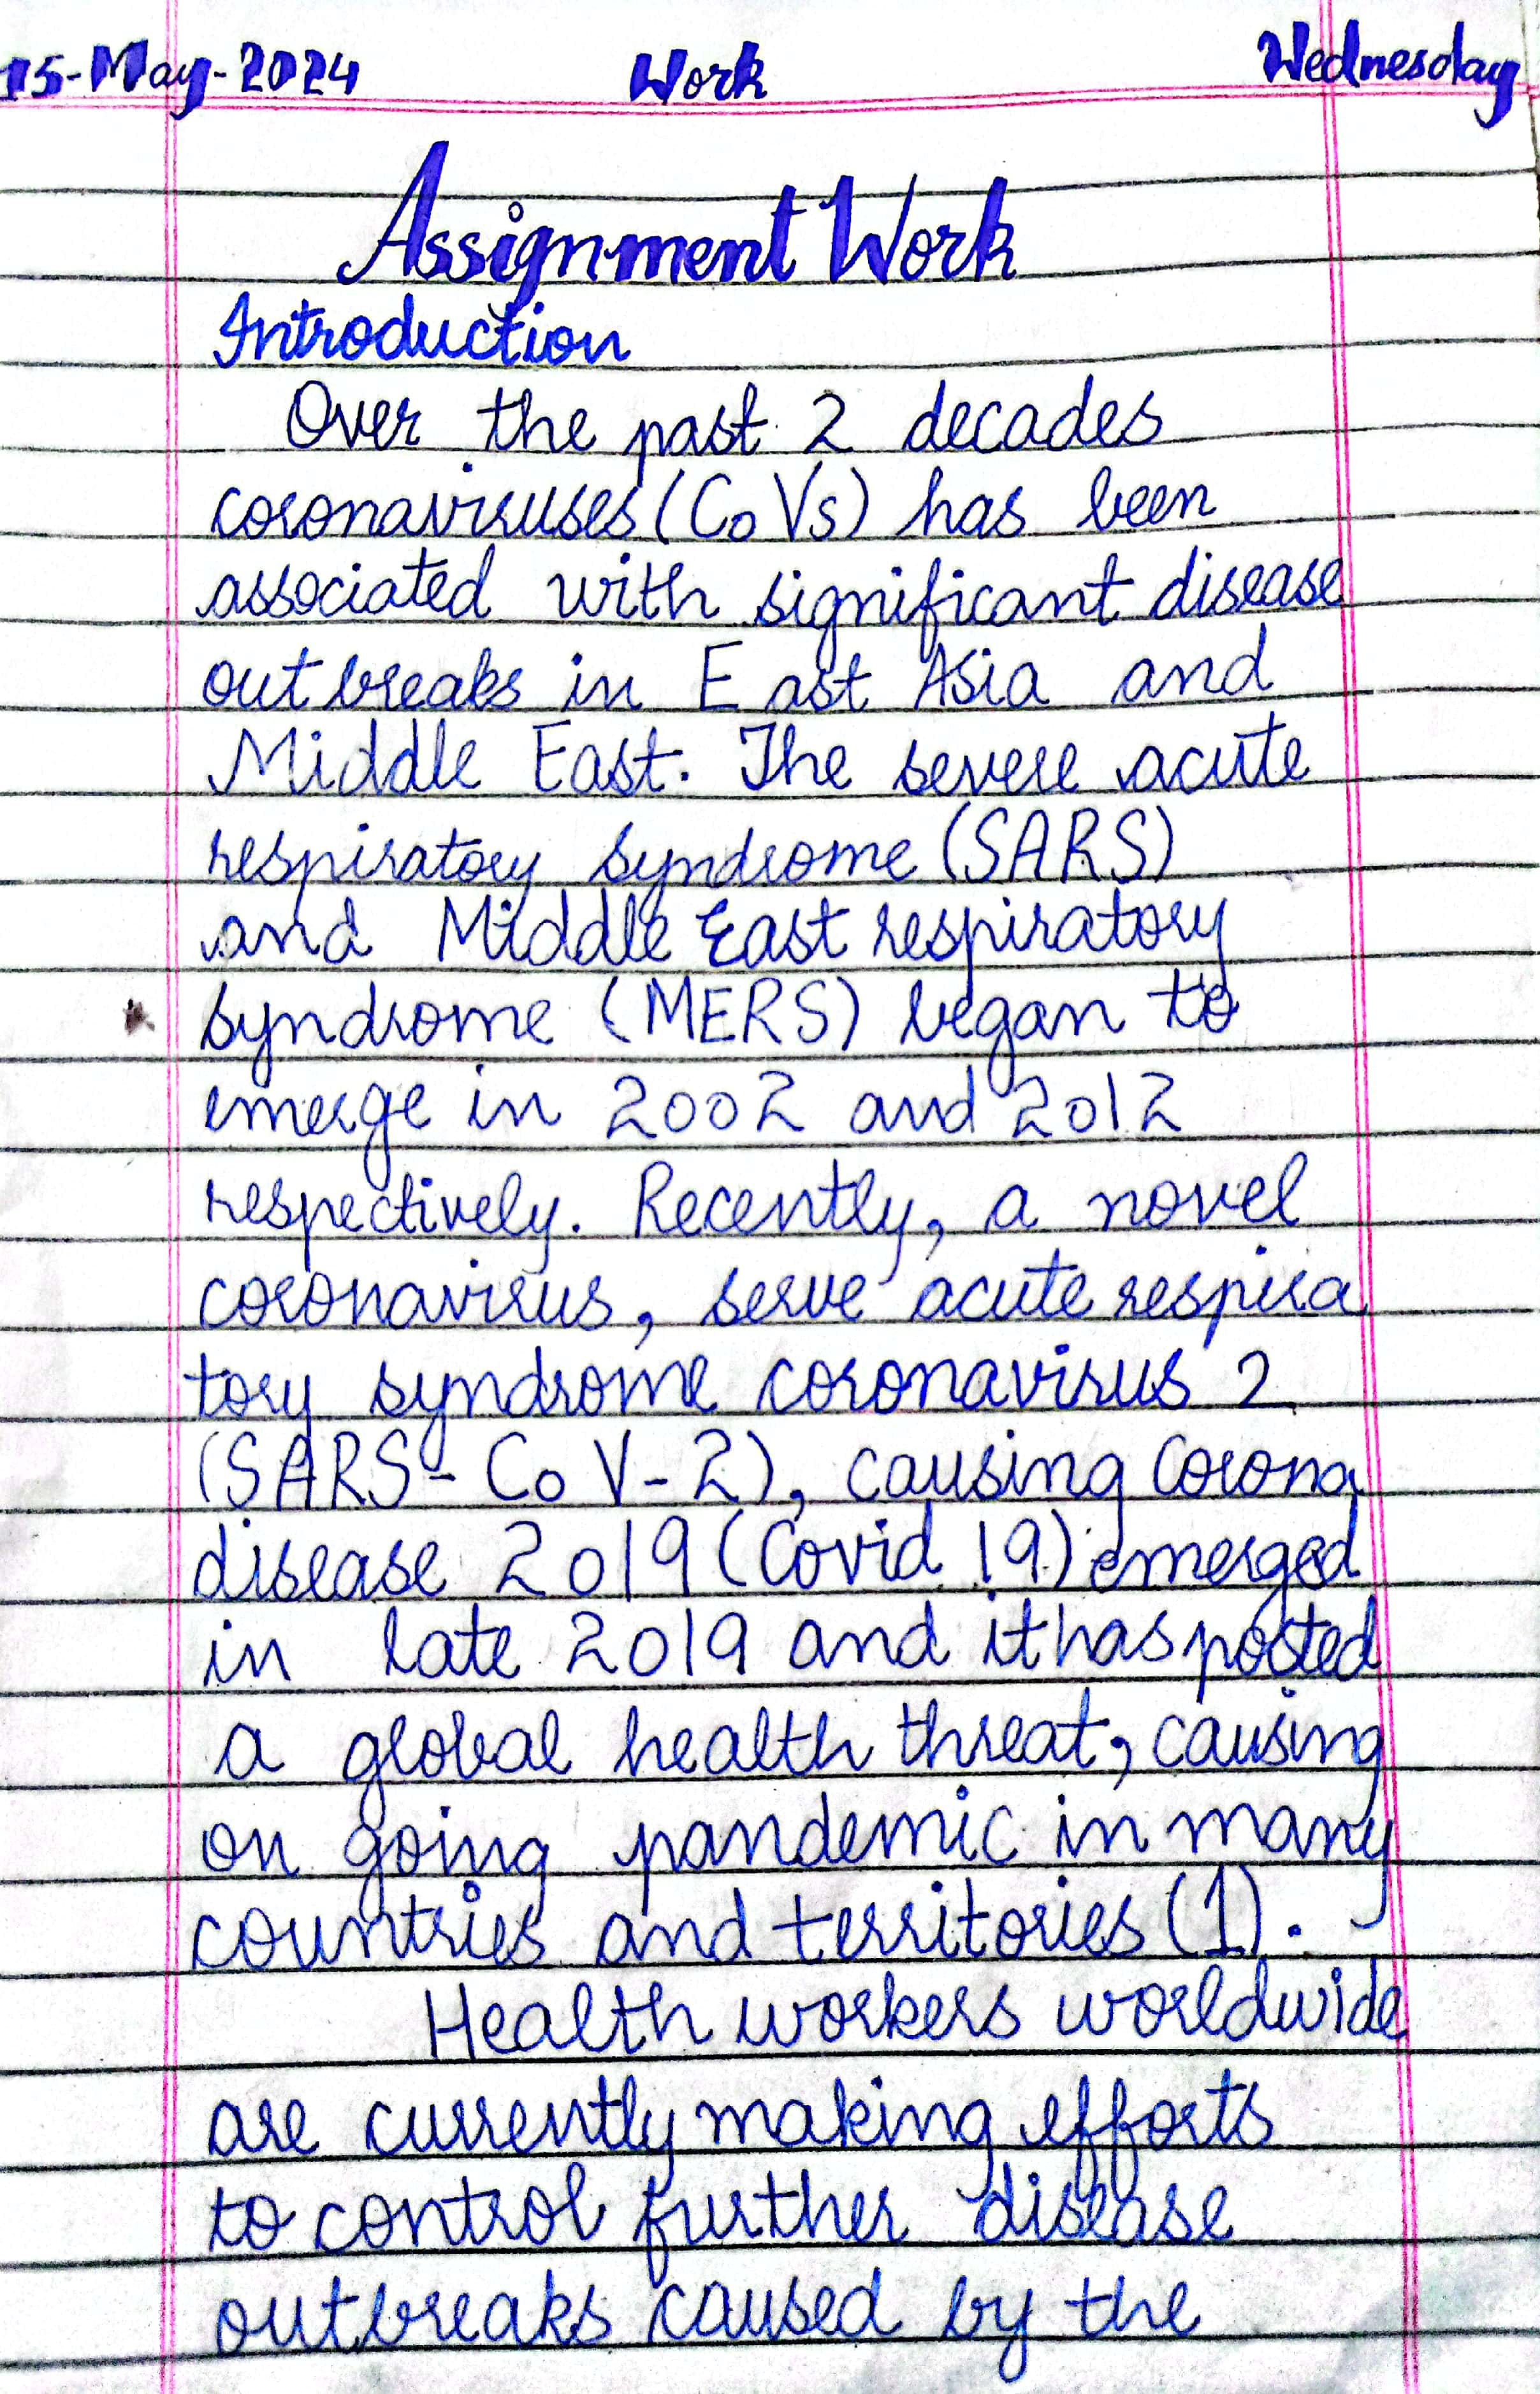 15-May-2024 Work Wednesday
Assignment Work
Introduction
Over the past 2 decades
coronaviruses (CoVs) has been
associated with significant disease
out breaks in East Asia and
Middle East. The severe acute
respiratory syndrome (SARS)
and Middle East respiratory
syndrome (MERS) began to
emerge in 2002 and 2012
respectively. Recently, a novel
coronavirus, serve acute respira
tory syndrome coronavirus 2
(SARS-CoV-2), causing Corona
disease 2019 (Covid 19) emerged
in late 2019 and it has posted
a global health threat, causing
on going pandemic in many
countries and territories (1).
Health workers worldwide
are currently making efforts
to control further disease
outbreaks caused by the